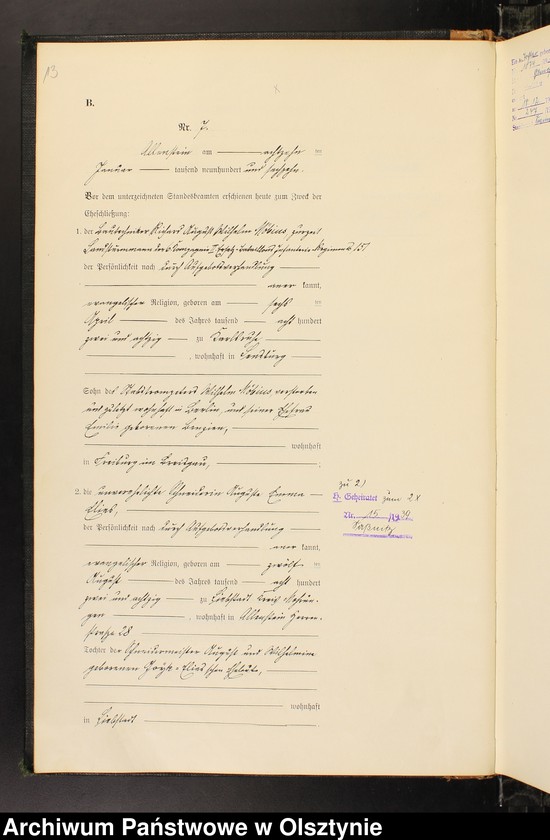 13
B.
Nr. 7.
Allenstein am achtzehn ten
Januar tausend neunhundert und sechzehn.
Vor dem unterzeichneten Standesbeamten erschienen heute zum Zweck der
Eheschließung:
1. der Bautechniker Richard August Wilhelm Möbius, zurzeit
Landsturmmann der Kompagnie Ersatz-Bataillons Infanterie Regiments 151
der Persönlichkeit nach durch Aufgebotsverhandlung
aner kannt,
evangelischer Religion, geboren am sechs ten
April des Jahres tausend acht hundert
zwei und achtzig zu Karlsruhe
, wohnhaft in
Sohn des Stabstrompeters Wilhelm Möbius verstorben
und zuletzt wohnhaft in Berlin, und seiner Ehefrau
Emilie geborenen
wohnhaft
in Freiburg im Breisgau,
2. die unverehelichte Schneiderin Auguste Emma
Elias,
der Persönlichkeit nach durch Aufgebotsverhandlung
aner kannt,
evangelischer Religion, geboren am zwölf ten
August des Jahres tausend acht hundert
zwei und achtzig zu Liebstadt Kreis Mohrun-
gen , wohnhaft in Allenstein Herren-
straße 28
Tochter der Schneidermeister August und Wilhelmine
geborenen Elias'schen Eheleute,
wohnhaft
in Liebstadt
zu 2)
Geheiratet zum 2 x
Nr. 15/1939
Saßnitz
Archiwum Państwowe w Olsztynie